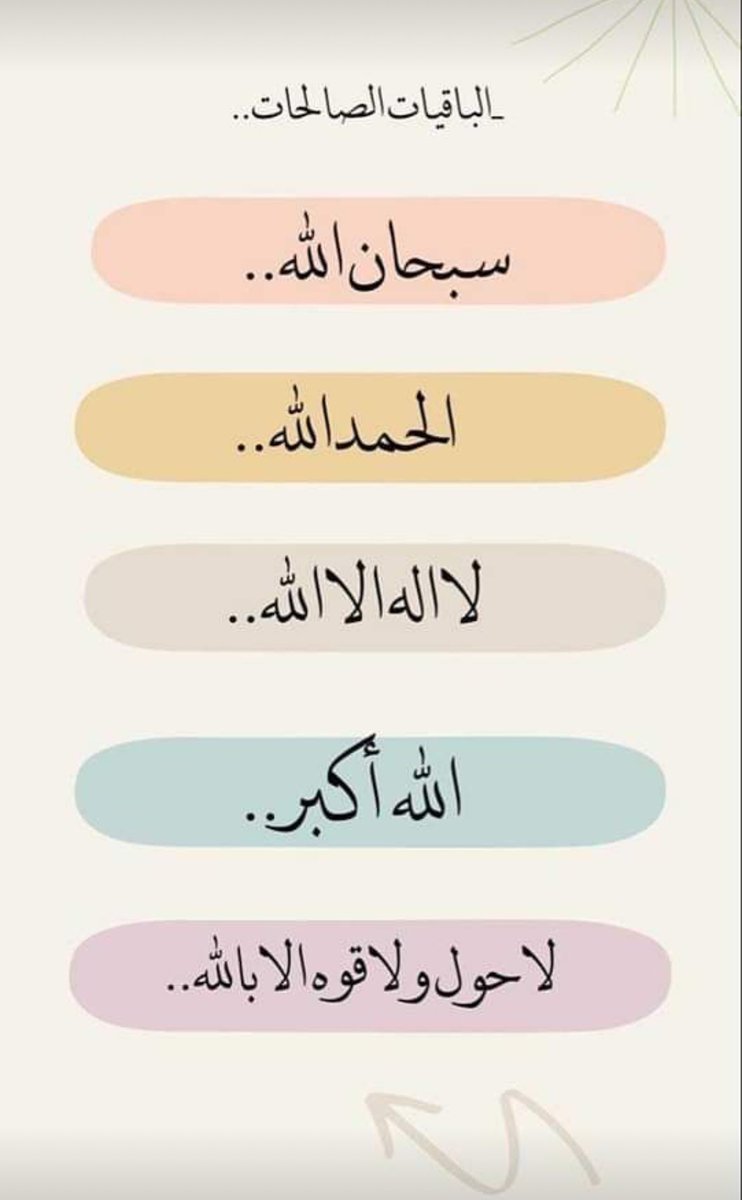 _الباقيات الصالحات..
سبحان الله..
الحمدالله..
لا اله الا الله..
الله أكبر..
لا حول ولا قوه الا بالله..